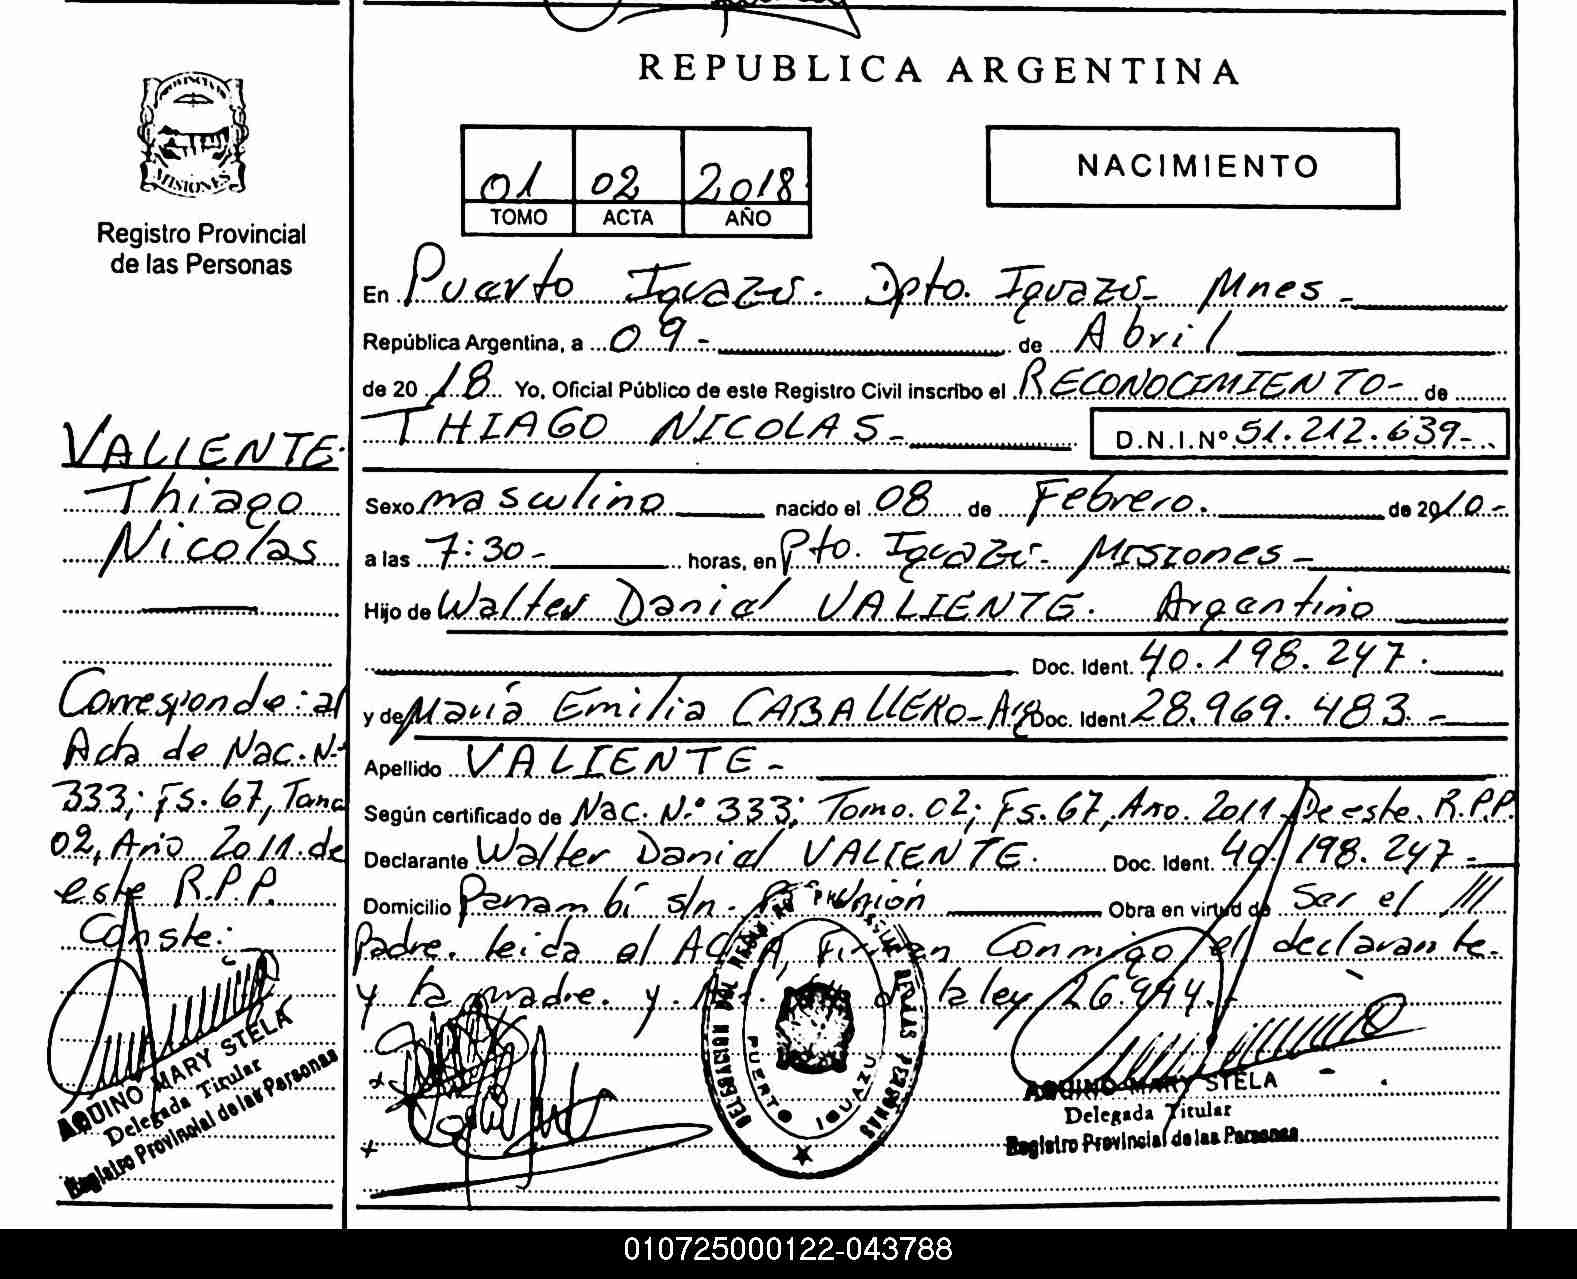 REPUBLICA ARGENTINA
MISIONES
Registro Provincial
de las Personas
01 02 2018
TOMO ACTA AÑO
NACIMIENTO
En Puerto Iguazú. Dpto. Iguazú- Mnes-
República Argentina, a 09- de Abril
de 2018 Yo, Oficial Público de este Registro Civil inscribo el RECONOCIMIENTO- de
THIAGO NICOLAS- D.N.I.Nº 51.212.639-
Sexo masculino nacido el 08 de Febrero. de 2010-
a las 7:30- horas, en Pto. Iguazú- Misiones-
Hijo de Walter Daniel VALIENTE. Argentino
Doc. Ident. 40.198.247.
y de María Emilia CABALLERO- Arg Doc. Ident. 28.969.483.-
Apellido VALIENTE-
Según certificado de Nac. N.º 333; Tomo. 02; Fs. 67, Año. 2011 De este. R.P.P.
Declarante Walter Daniel VALIENTE. Doc. Ident. 40.198.247-
Domicilio Panambí s/n. Unión Obra en virtud de Ser el ///
Padre. leida el ACTA, Firman Conmigo el declarante.
y la madre. y. la ley 26.994.
VALIENTE.
Thiago
Nicolas
Corresponde: al
Acta de Nac. N.º
333; Fs. 67, Tomo
02, Año 2011. de
este R.P.P.
Conste:
AQUINO MARY STELA
Delegada Titular
Registro Provincial de las Personas
PUERTO IGUAZU
AQUINO MARY STELA
Delegada Titular
Registro Provincial de las Personas
010725000122-043788